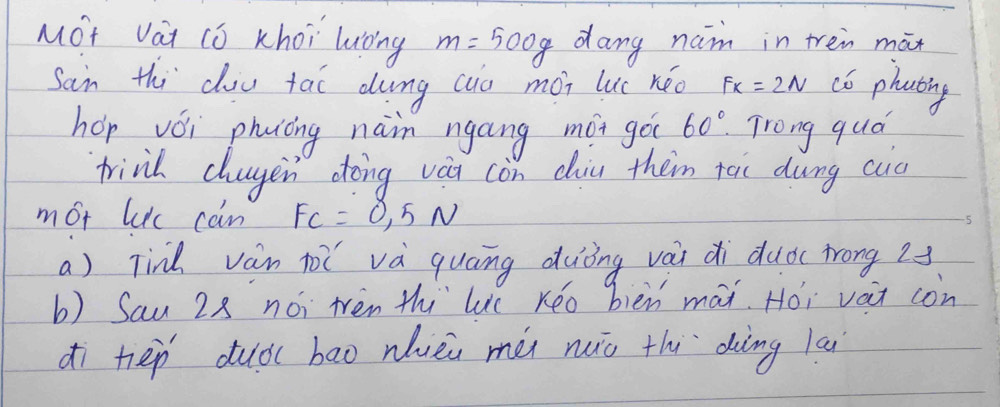 Một vật có khối lượng m = 500g đang nằm in trên mặt
sàn thì chịu tác dụng của một lực kéo Fk = 2N có phương
hợp với phương nằm ngang một góc 60°. Trong quá
trình chuyển động vật còn chịu thêm tác dụng của
một lực cản Fc = 0,5 N
a) Tính vận tốc và quãng đường vật đi được trong 2s
b) Sau 2s nói trên thì lực kéo biến mất. Hỏi vật còn
đi tiếp được bao nhiêu mét nữa thì dừng lại